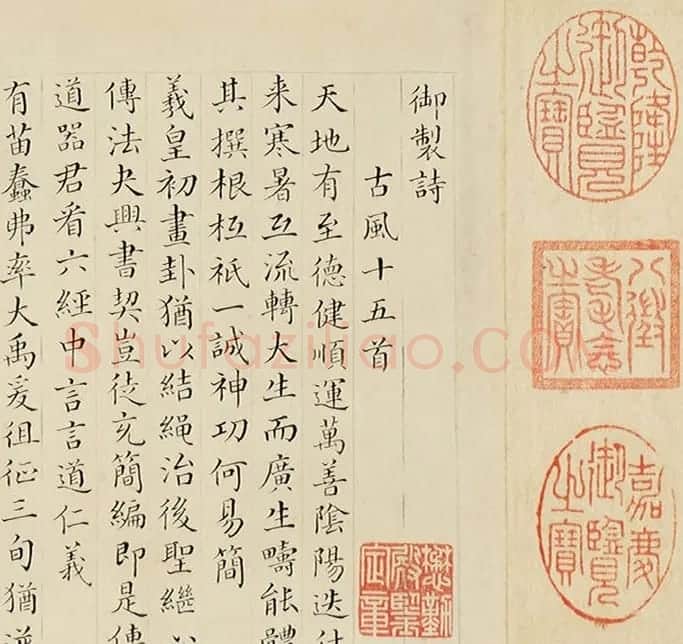 乾隆御覽之寶
八徵耄念之寶
嘉慶御覽之寶
御製詩
古風十五首
懋勤殿鑒定章
天地有至德健順運萬善陰陽迭
来寒暑互流轉大生而廣生疇能體
其撰根柢祇一誠神功何易簡
羲皇初畫卦猶以結繩治後聖繼
傳法夬興書契豈徒充簡編即是傳
道器君看六經中言言道仁義
有苗蠢弗率大禹爰徂征三旬猶逆
Shufaziliao.com